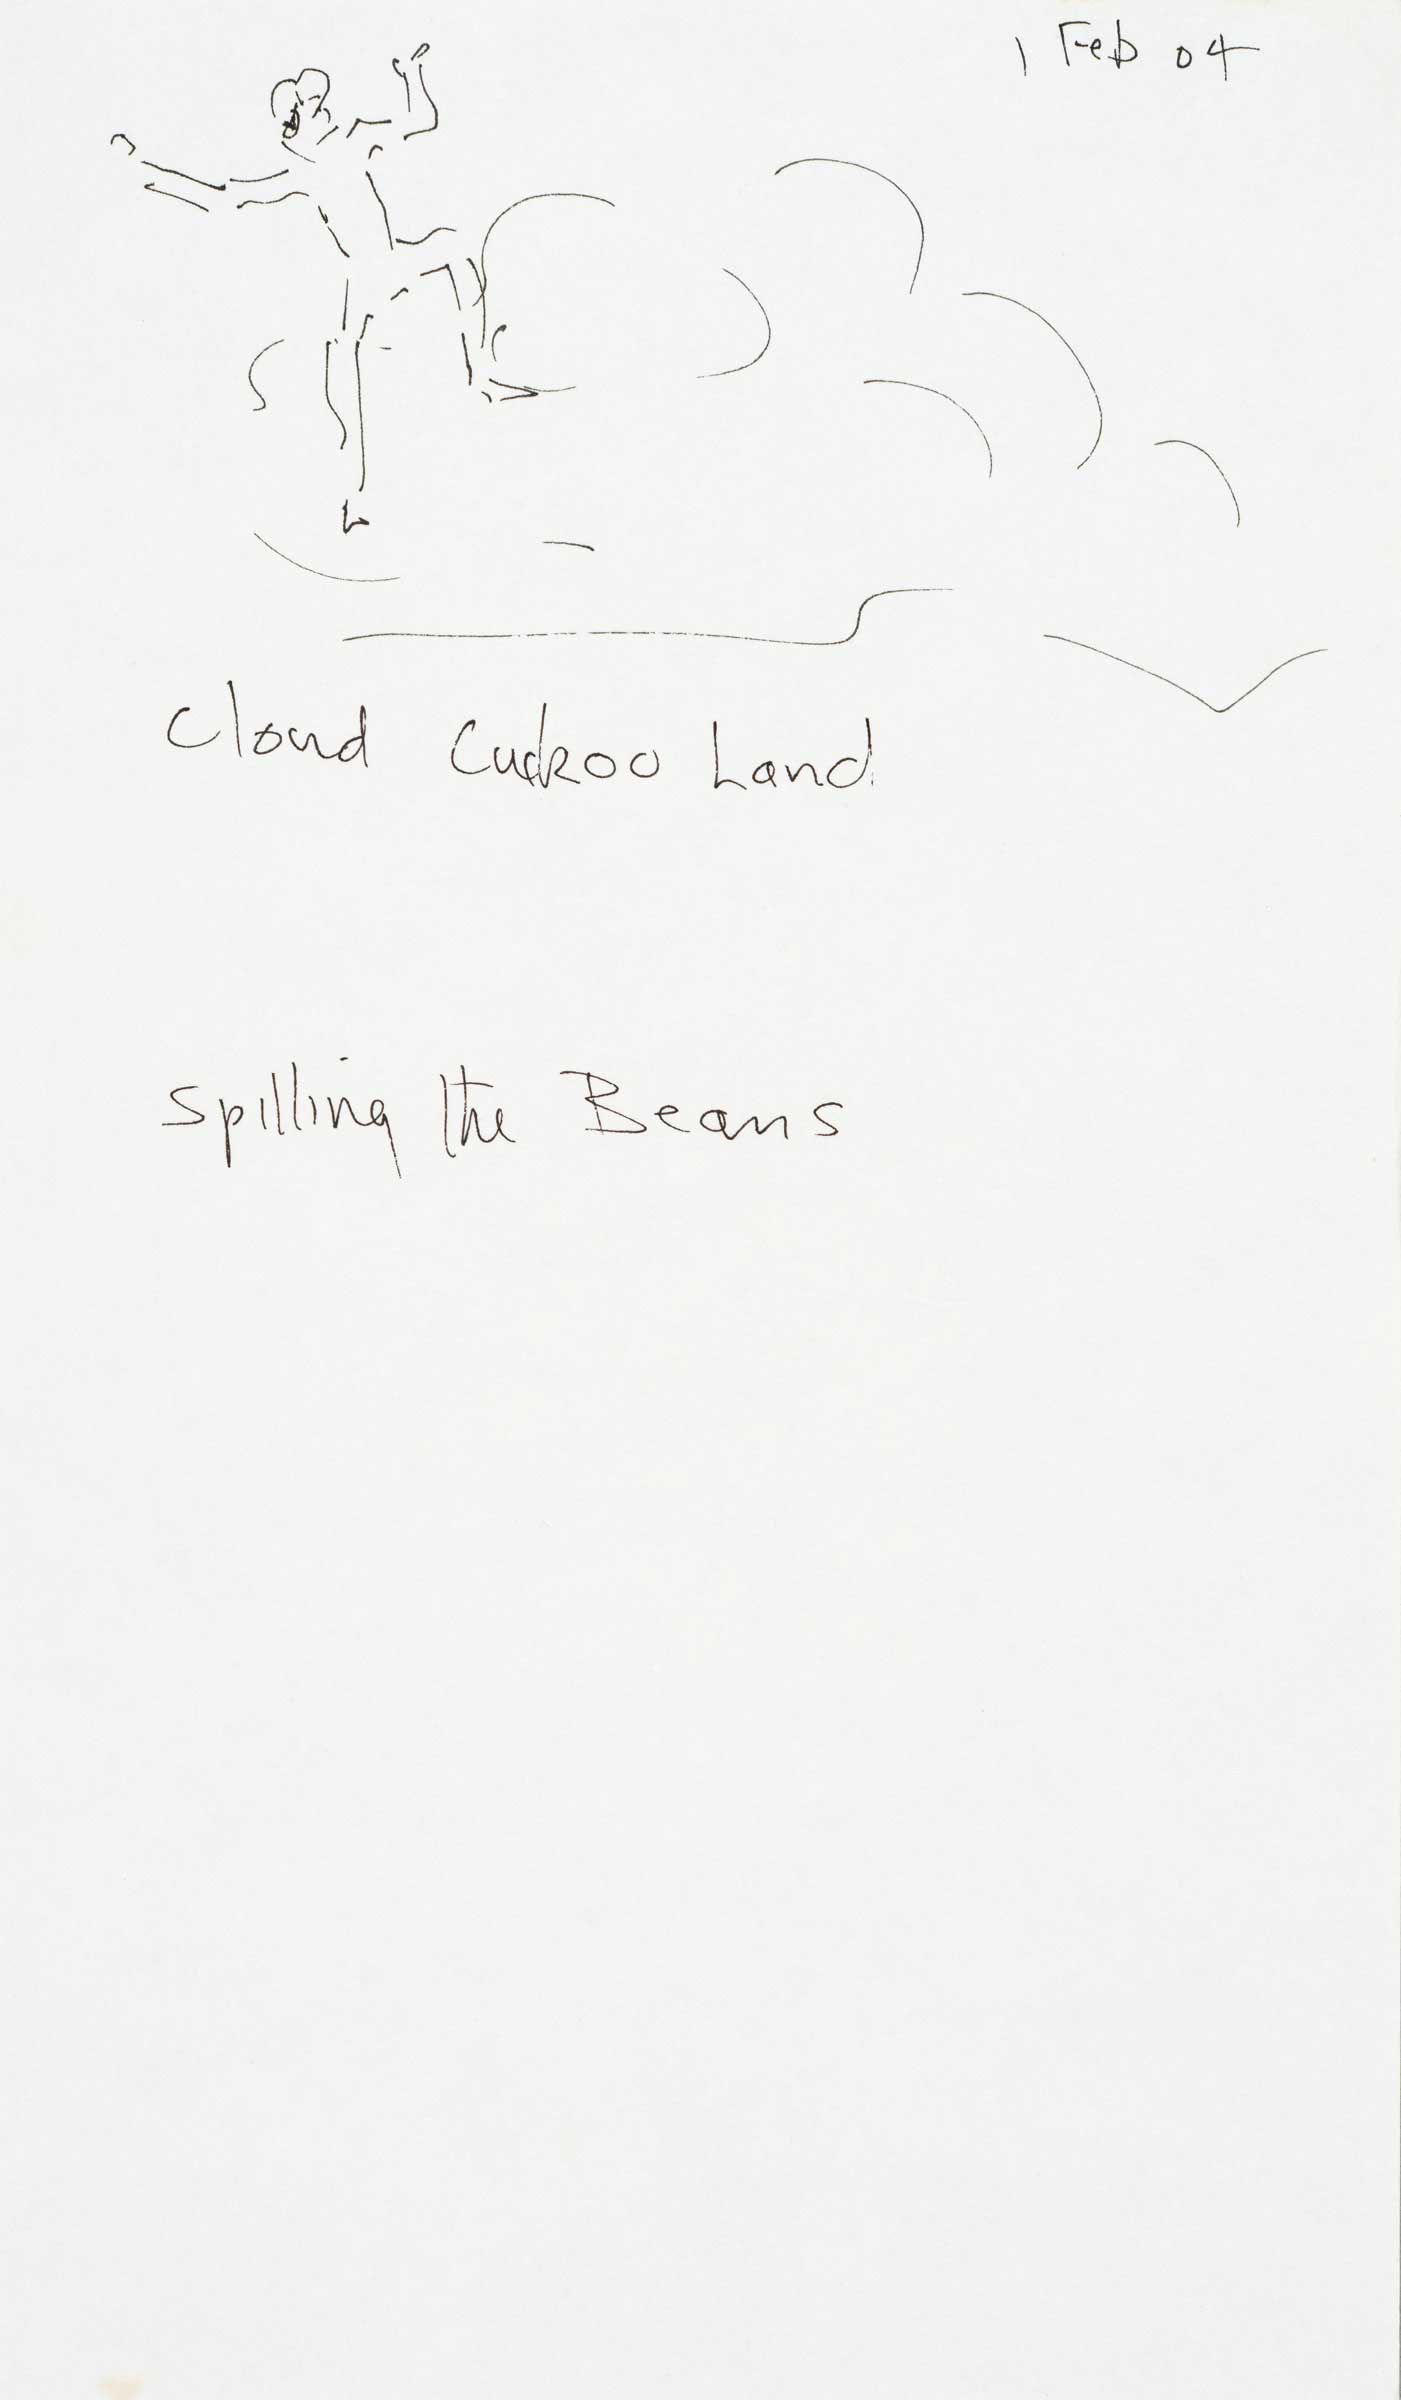 1 Feb 04
Cloud Cuckoo Land
Spilling the Beans